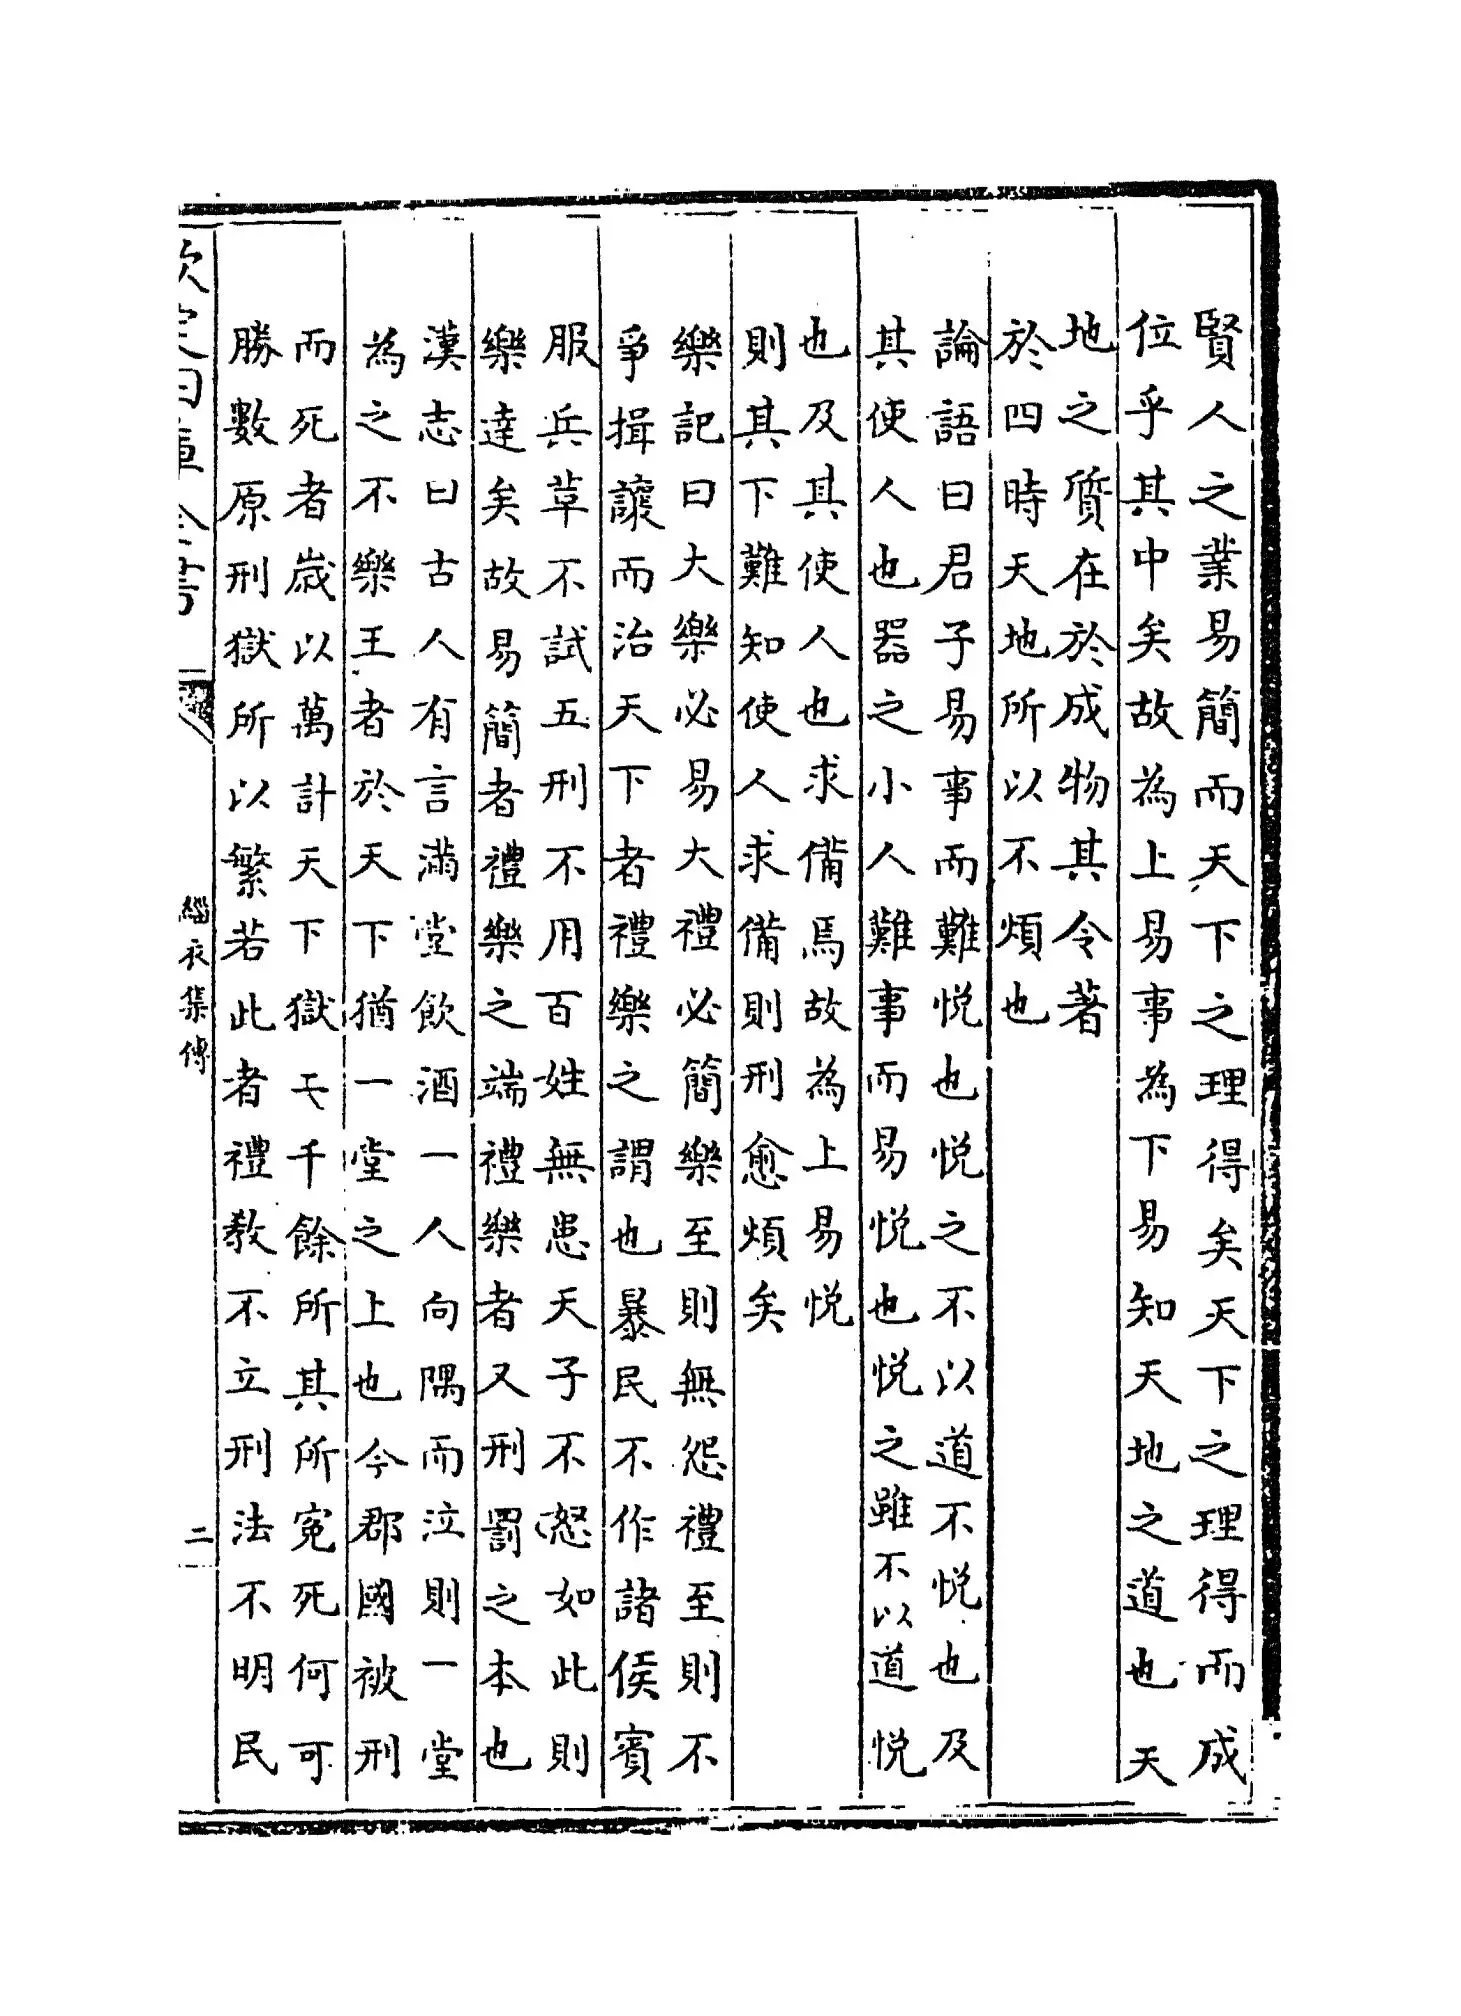 賢人之業易簡而天下之理得矣天下之理得而成
位乎其中矣故為上易事為下易知天地之道也天
地之質在於成物其令著
於四時天地所以不煩也
論語曰君子易事而難悦也悦之不以道不悦也及
其使人也器之小人難事而易悦也悦之雖不以道悦
也及其使人也求備焉故為上易悦
則其下難知使人求備則刑愈煩矣
樂記曰大樂必易大禮必簡樂至則無怨禮至則不
爭揖讓而治天下者禮樂之謂也暴民不作諸侯賓
服兵革不試五刑不用百姓無患天子不怒如此則
樂達矣故易簡者禮樂之端禮樂者又刑罰之本也
漢志曰古人有言滿堂飲酒一人向隅而泣則一堂
為之不樂王者於天下猶一堂之上也今郡國被刑
而死者歲以萬計天下獄二千餘所其所寃死何可
勝數原刑獄所以繁若此者禮教不立刑法不明民
欽定四庫全書
緇衣集傳
二